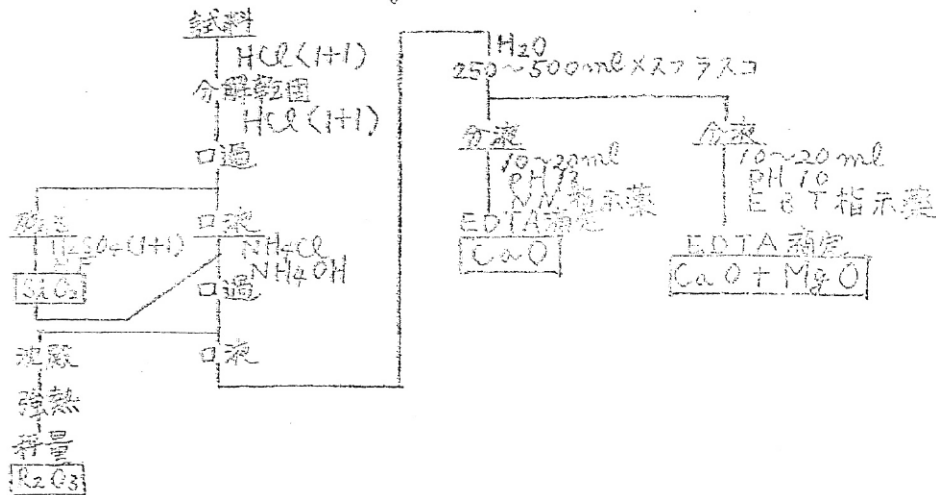 試料
HCl(1+1)
分解乾固
HCl(1+1)
口過
残さ
H2SO4(1+1)
HF
SiO2
口液
NH4Cl
NH4OH
口過
沈殿
強熱
秤量
R2O3
口液
H2O
250~500mlメスフラスコ
分液
10~20ml
PH 13
N.N.指示薬
EDTA滴定
CaO
分液
10~20ml
PH 10
EBT指示薬
EDTA滴定
CaO+MgO